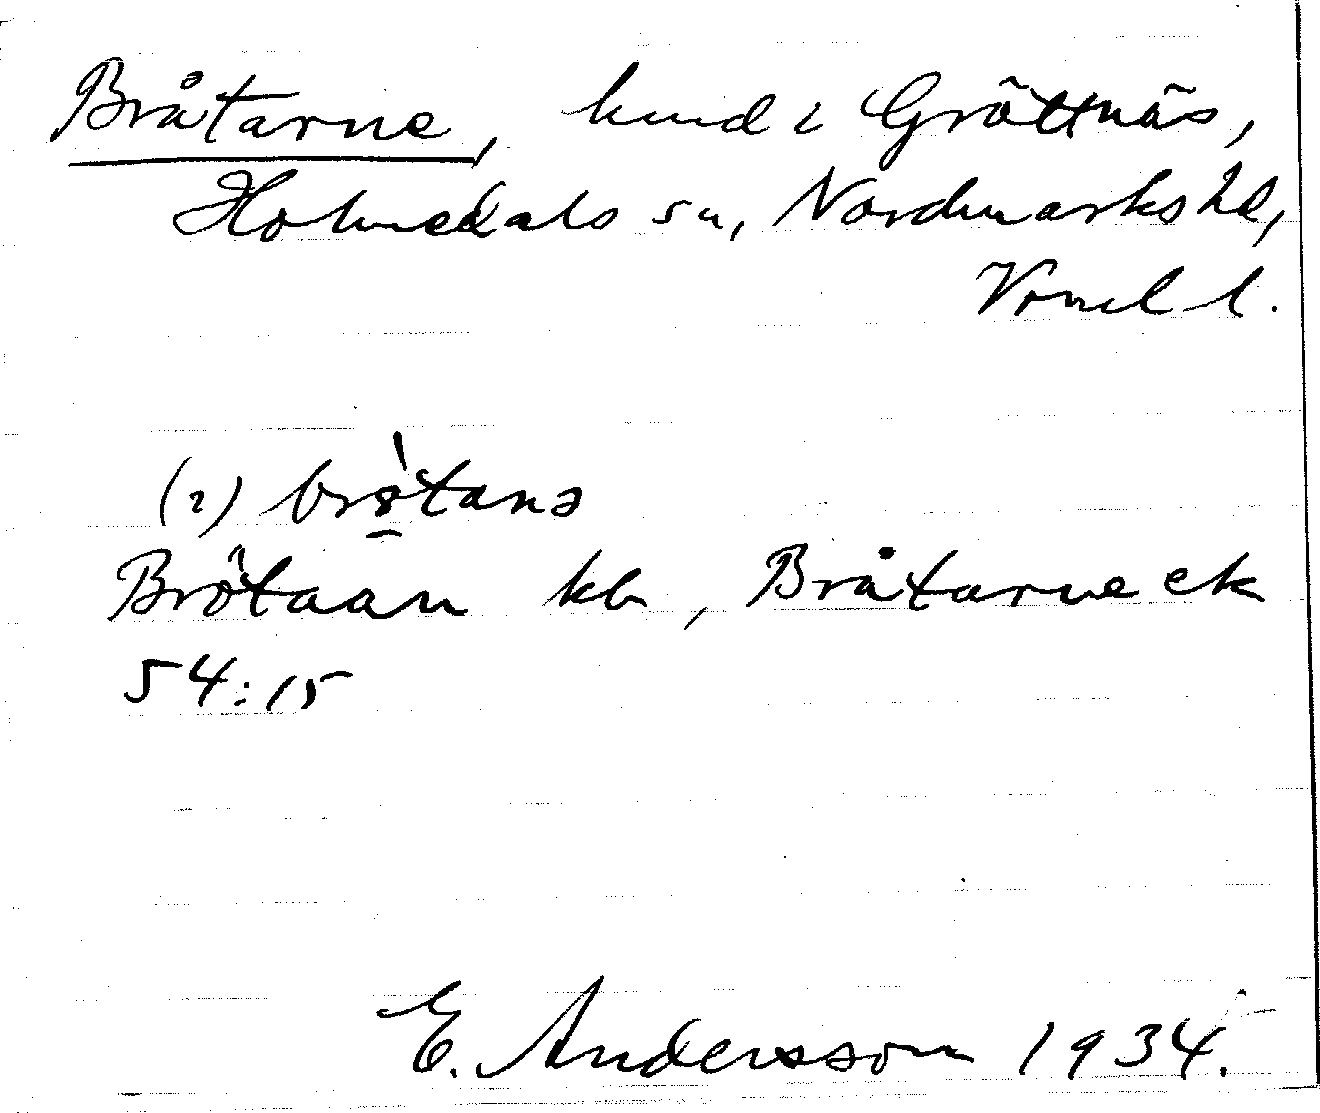 Bråtarne, hmd i Gröttnäs,
Holmedals sn, Nordmarks hd,
Vrml l.
(i) bròtanə
Brötaan kb, Bråtarne ek
54:15
E. Andersson 1934.